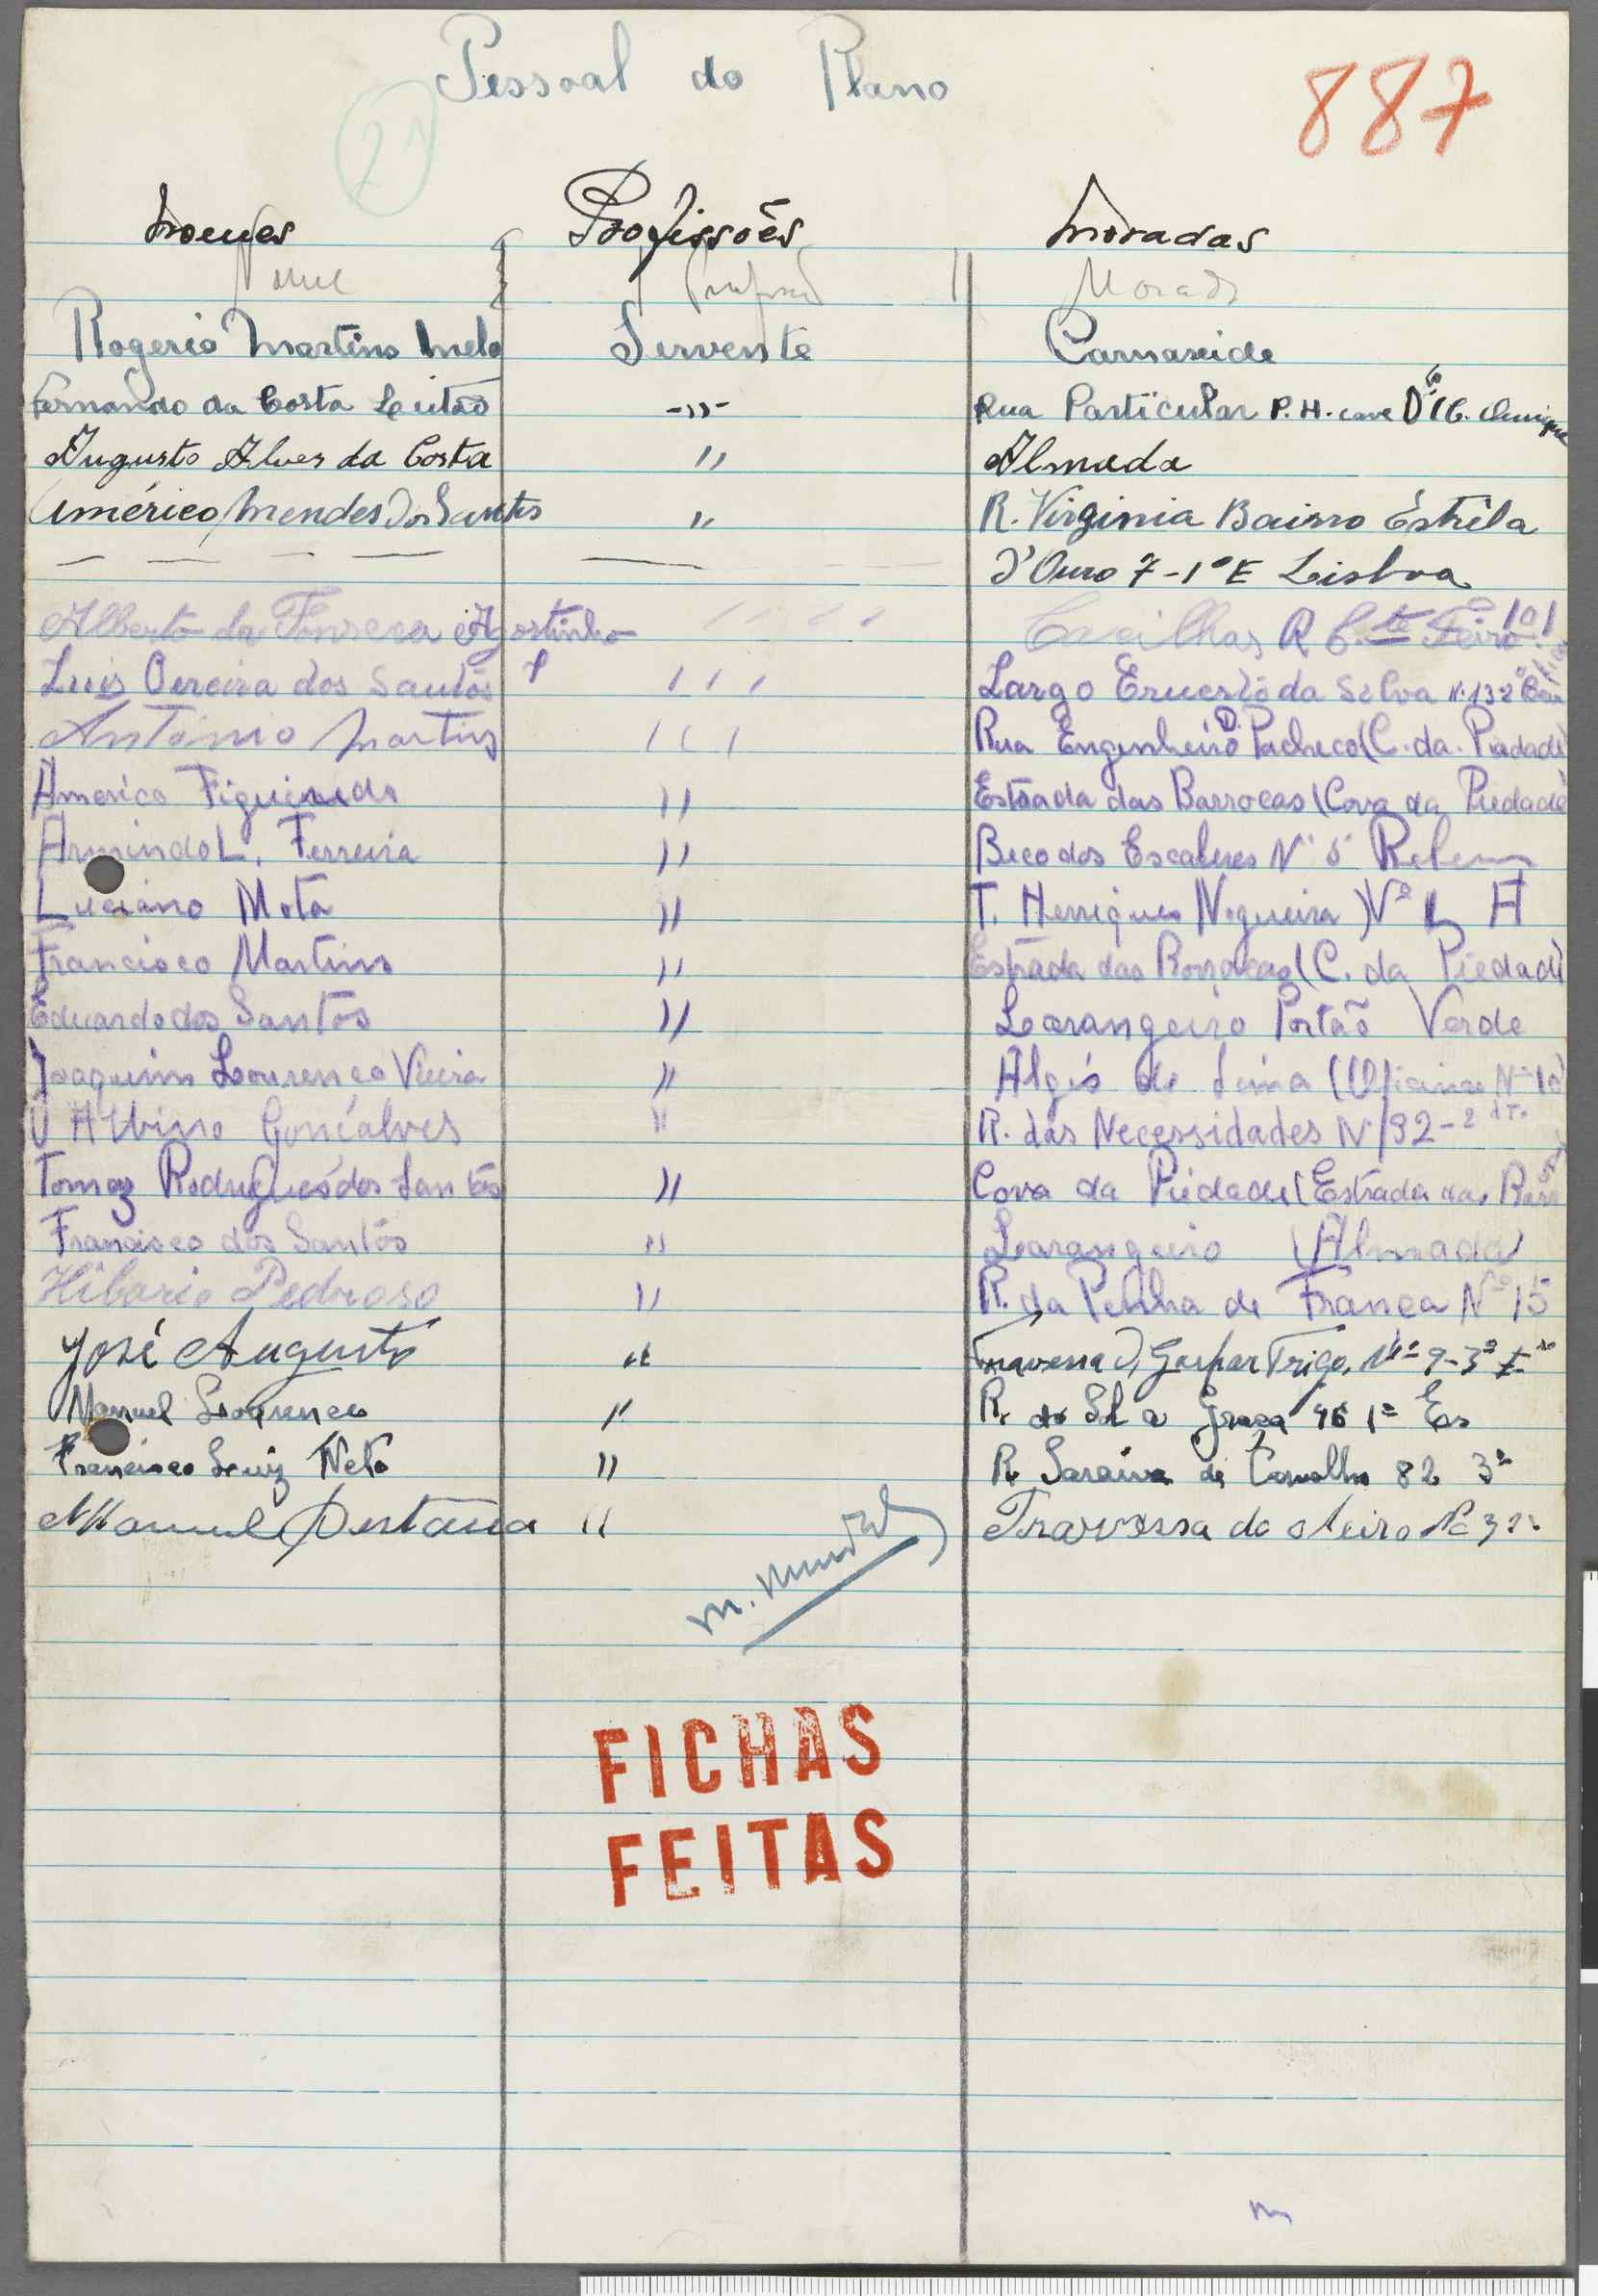 Pessoal do Plano
21
887
Nomes Profissões Moradas
Nome Morada
Rogerio Martins Melo Servente Carnaxide
Fernando da Costa Leitão -,,- Rua Particular P.H. cave Dto
Augusto Alves da Costa " Almada
Américo Mendes dos Santos " R. Virginia Bairro Estrêla
d'Ouro 7-1º E Lisboa
Alberto da Fonseca Agostinho " " Cacilhas R
Luis Pereira dos Santos ''' Largo Ernesto da Selva N. 132
António Martins ''' Rua Engenheiro D. Pacheco (C. da. Piadade)
Americo Figueiredo " Estrada das Barrocas (Cova da Piedade
Armindo L. Ferreira " Beco dos Escaleres Nº 5
Luciano Mota " T. Henriques Nogueira Nº L H
Francisco Martins " Estrada das Barrocas (C. da Piedade
Eduardo dos Santos " Larangeiro Portão Verde
Joaquim Lourenco Vieira " Algés de Sima (Oficinas Nº 10)
Albino Gonçalves " R. das Necessidades N 92-2 dto
Tomaz Rodrigues dos Santos " Cova da Piedade (Estrada das Barr
Francisco dos Santos " Larangeiro (Almada)
Hilario Pedroso " R. da Penha de França Nº 15
José Augusto " Travessa D, Gaspar Trigo, Nº 9-3º E
Manuel Lourenco " R. do Sol a Graça 96 1º Es
Francisco Luiz Neto " R. Saraiva de Carvalho 82 3º
Manuel Santana " Travessa do
FICHAS
FEITAS